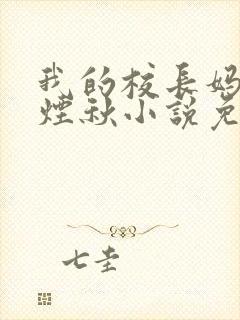 我的校长妈
烟秋小說免
七圭